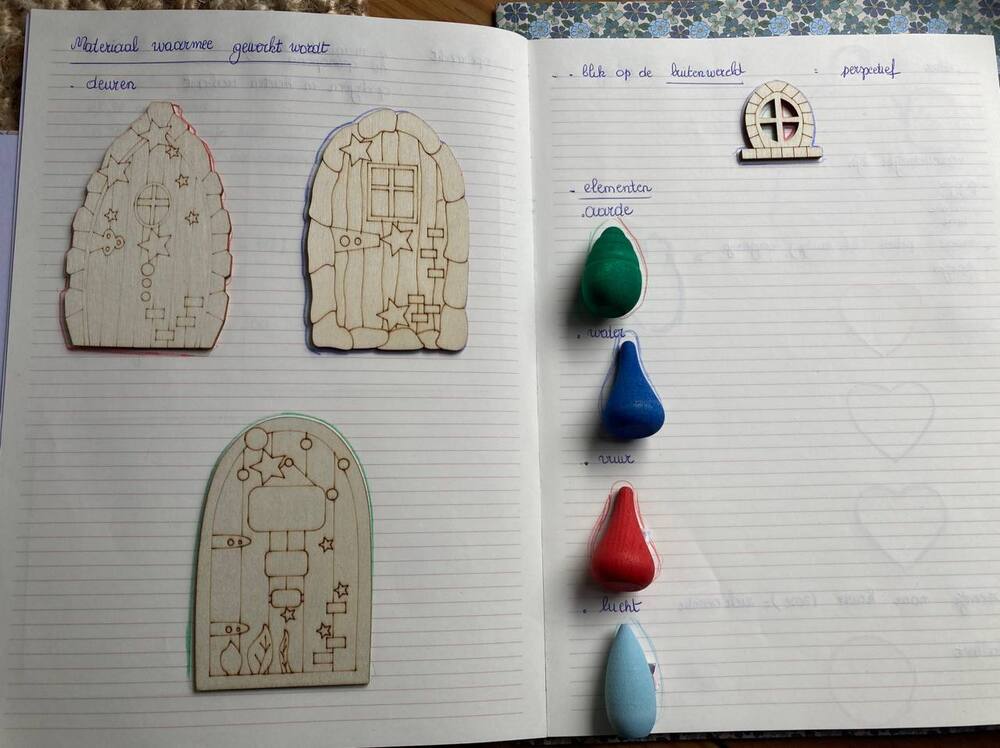 Materiaal waarmee gewerkt wordt
. deuren
- . blik op de buitenwereld : perspectief
- elementen
. aarde
. water
. vuur
. lucht